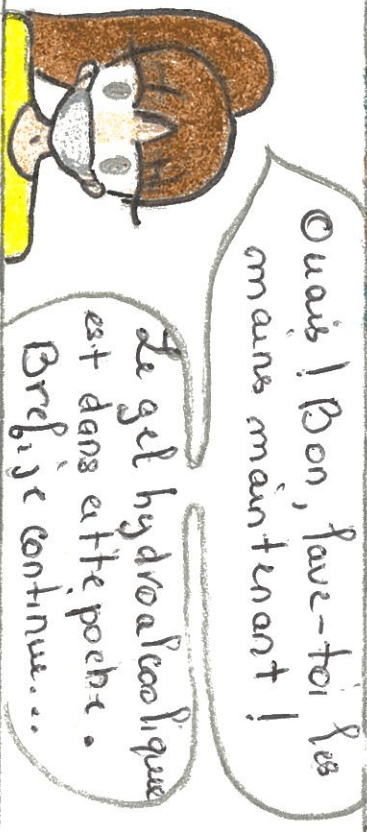 Ouais ! Bon, lave-toi les
mains maintenant !
Le gel hydroalcoolique
est dans cette poche.
Bref, je continue...